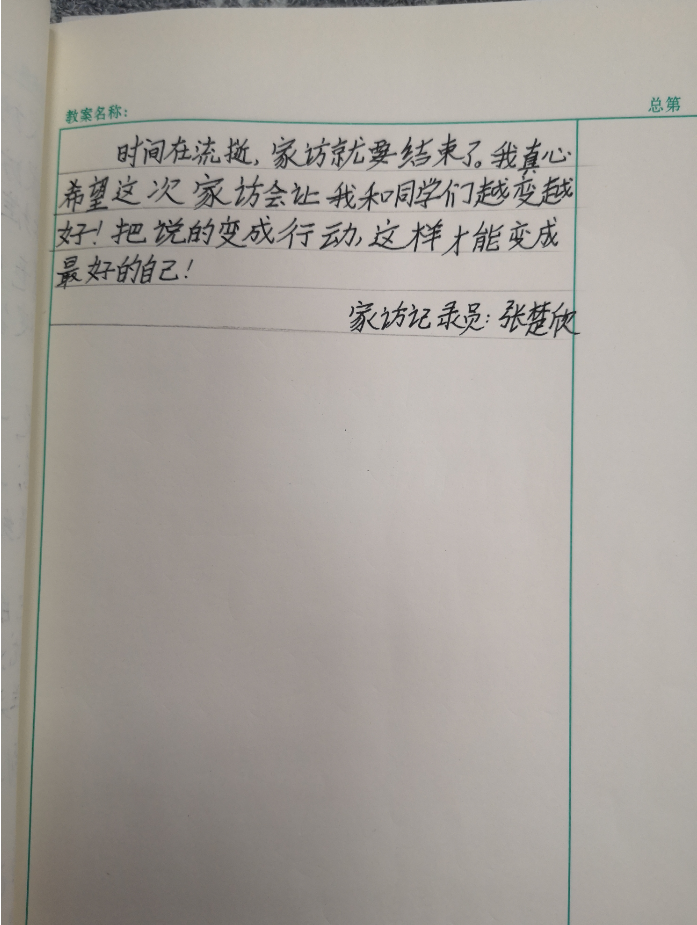 教案名称: 总第
时间在流逝,家访就要结束了。我真心
希望这次家访会让我和同学们越变越
好!把说的变成行动,这样才能变成
最好的自己!
家访记录员:张楚欣